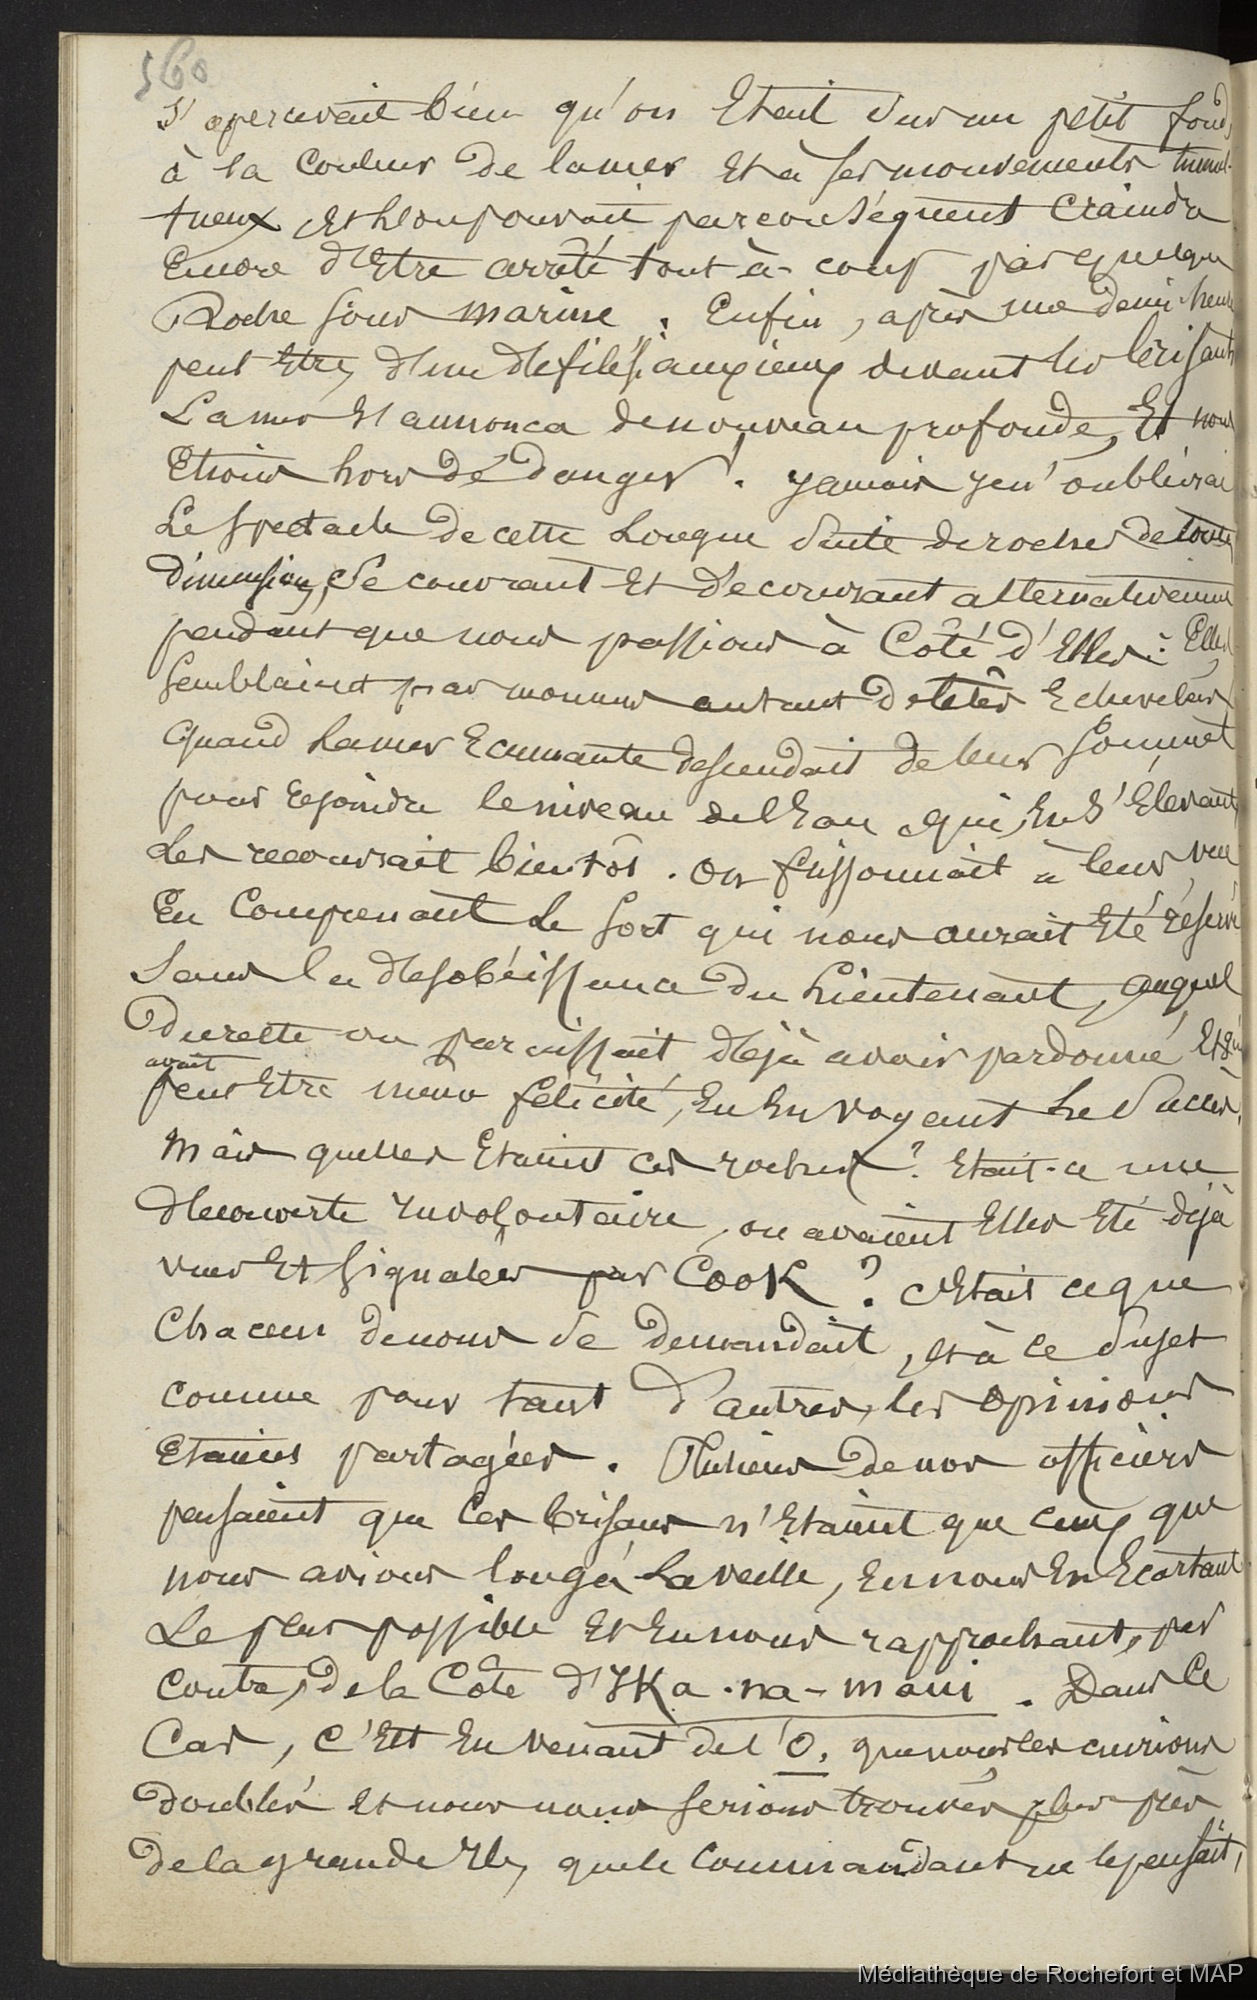 560
s'apercevait bien qu'on Etait sur un petit fond,
à la Couleur de lamer Et à ses mouvements tumul-
tueux, Et l'on pouvait parconséquent Craindre
Encore d'Etre arrêté tout à-coup par quelque
Roche sous marine. Enfin, après une demi-heure
peut Etre, d'un défilé anxieux devant les brisants
La mer s'annonca denouveau profonde, Et nous
Etions hors dé danger. Jamais je n'oublierai
Le spectacle de cette longue suite de roches de toutes
dimensions, se couvrant Et Découvrant alternativement
pendant que nous passions à Côté d'Elles: Elles
semblaient par moment autant de têtes Echevelées
Quand la mer Ecumante descendait de leur sommet
pour rejoindre le niveau de l'Eau qui, En s'Elevant,
les recouvrait bientôt. On frissonnait à leur vue
En Comprenant le sort qui nous aurait Eté réservé
Sans la désobéissance du Lieutenant, auquel
Dureste on paraissait déjà avoir pardonné Et qu'on
avait
peut Etre même félicité, En En voyant le Succès.
Mais quelles Etaient ces roches? Etait-ce une
découverte involontaire, ou avaient Elles Eté déjà
vues Et signalées par Cook? C'Etait ceque
Chacun denous se demandait, Et à ce sujet
comme pour tant d'autres, les opinions
Etaient partagées. Plusieurs denos officiers
pensaient que ces brisans n'Etaient que ceux que
nous avions longé la veille, En nous En Ecartant
Le plus possible Et En nous rapprochant, par
contre, de la Côte d'Ika-na-maui. Dans Ce
Cas, C'Est En venant de l'O, que nous les aurions
doublés Et nous nous serions trouvés plus près
dela grande Ile, que le Commandant ne le pensait,
Médiathèque de Rochefort et MAP